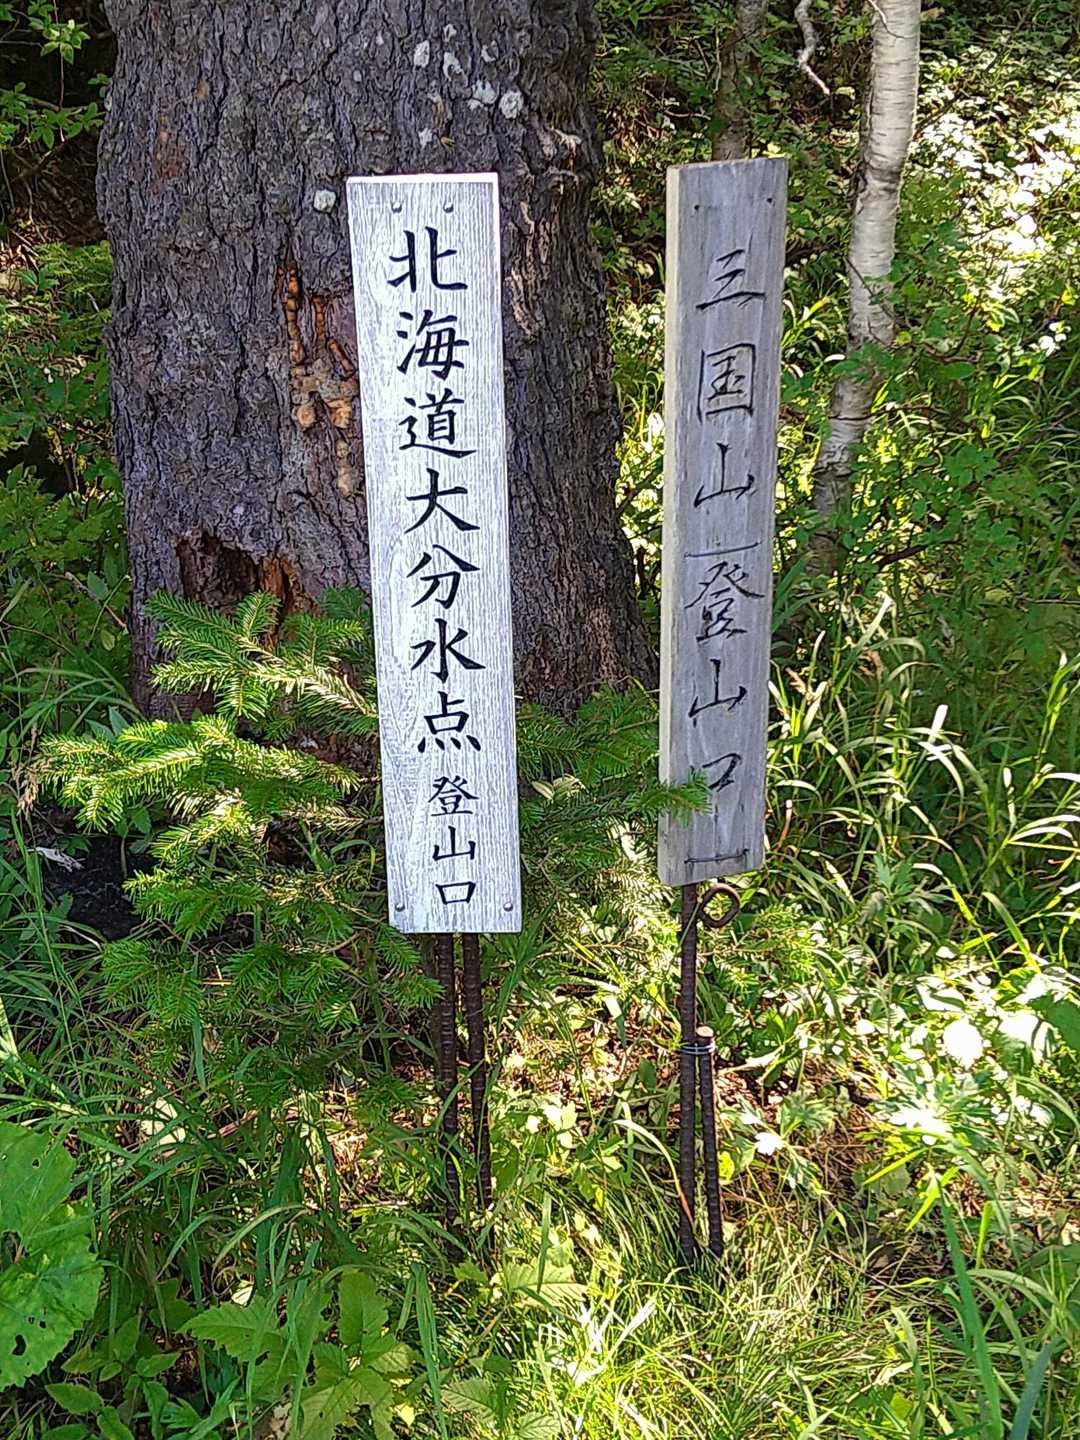 北海道大分水点登山口
三国山登山口